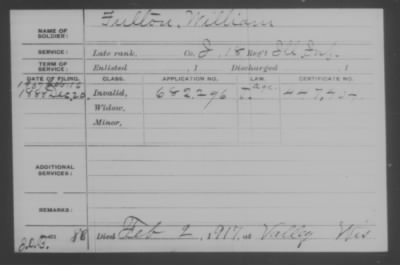 NAME OF SOLDIER: Fulton, William
SERVICE: Late rank, Co. I, 18 Reg't Ill Inf.
TERM OF SERVICE: Enlisted , 1 Discharged , 1
DATE OF FILING. CLASS. APPLICATION NO. LAW. CERTIFICATE NO.
Invalid, 682296
Widow,
Minor,
ADDITIONAL SERVICES:
REMARKS:
Died Feb 2, 1917, at Valley Wis